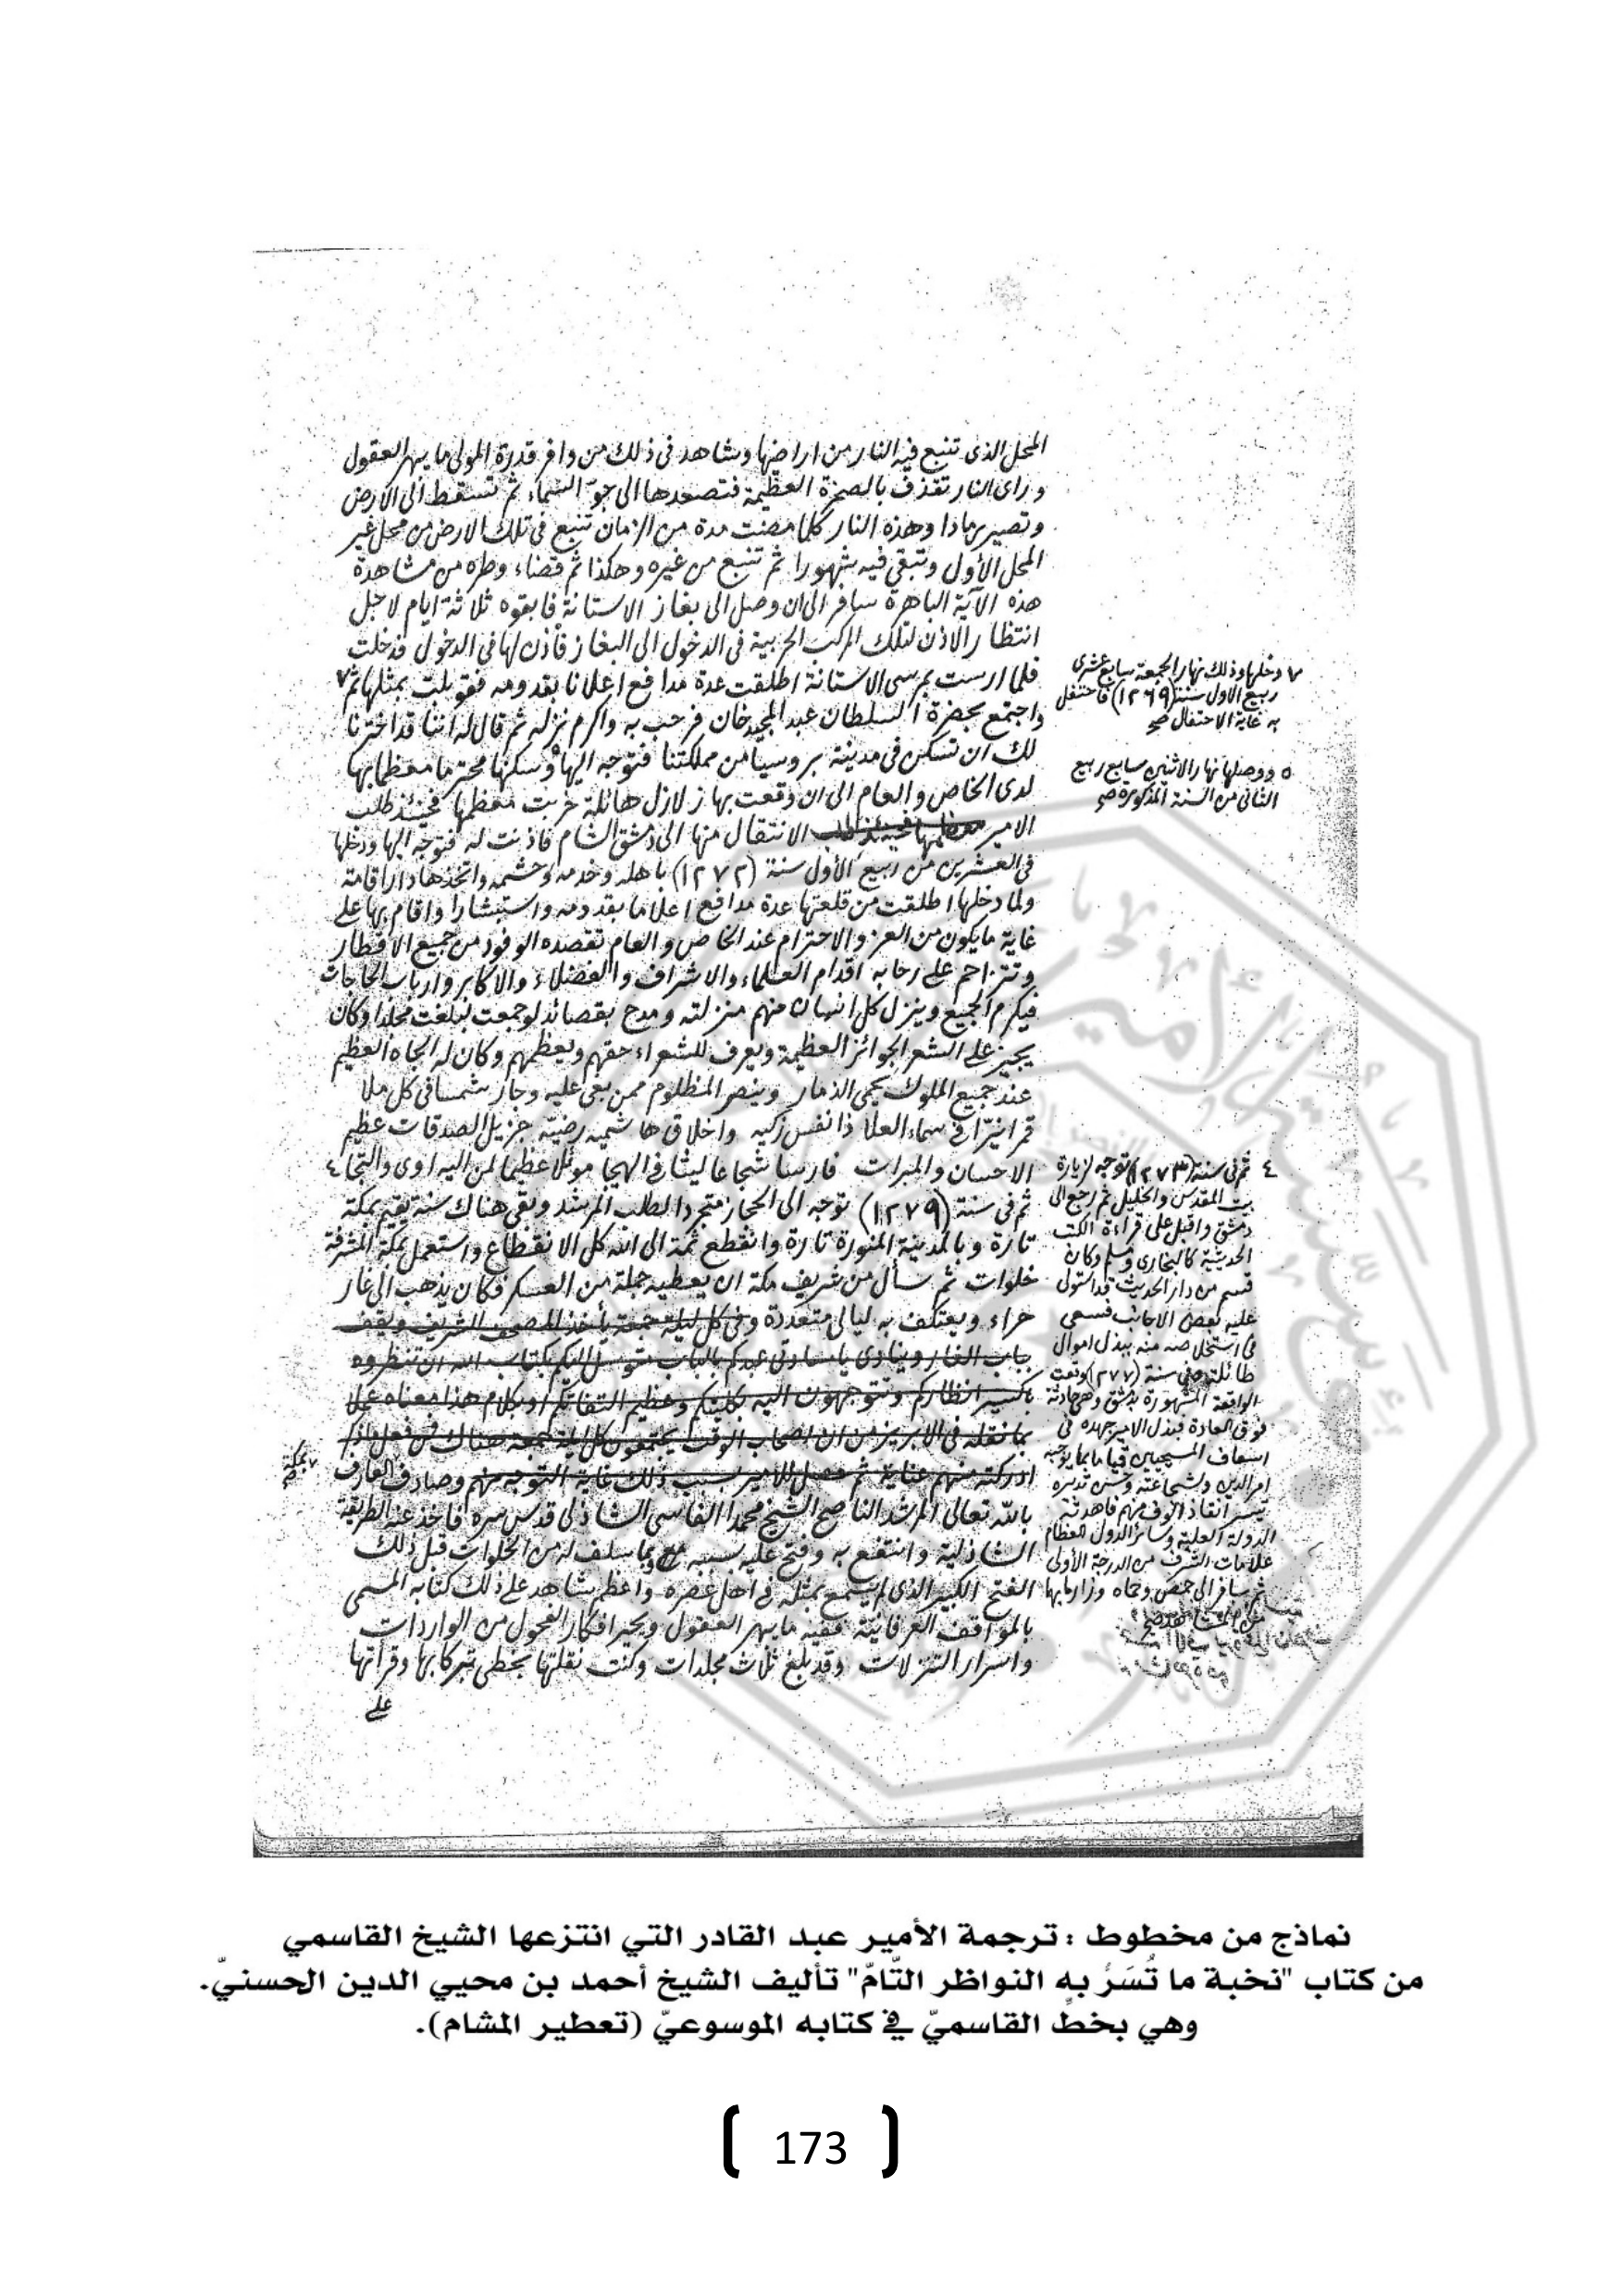 المحل الذى تنبع فيه النار من اراضيها وشاهد فى ذلك من وافر قدرة المولى ما يبهر العقول
وراى النار تقذف بالصخرة العظيمة فتصعدها الى جوّ السماء ثم تسقط الى الارض
وتصير رمادا وهذه النار كلما مضت مدة من الزمان تنبع فى تلك الارض من محل غير
المحل الأول وتبقى فيه شهورا ثم تنبع من غيره وهكذا ثم قضاء وطره من مشاهدة
هذه الآية الباهرة سافر الى ان وصل الى بغاز الاستانة فابقوه ثلاثة ايام لاجل
انتظار الاذن لتلك المركب الحربية فى الدخول الى البغاز فأذن لها فى الدخول فدخلت
فلما ارست بمرسى الاستانة اطلقت عدة مدافع اعلانا بقدومه فقوبلت بمثلها ثم ٧
واجتمع بحضرة السلطان عبد المجيد خان فرحب به واكرم نزله ثم قال له اننا قد اخترنا
لك ان تسكن فى مدينة بروسيا من مملكتنا فتوجه اليها ٥ وسكنها محترما معظما بها
لدى الخاص والعام الى ان وقعت بها زلازل هائلة خربت معظمها فحينئذ طلب
الامير معظمها فحينئذ طلب الانتقال منها الى دمشق الشام فاذنت له فتوجه اليها ودخلها
فى العشرين من ربيع الأول سنة (١٢٧٢) باهله وخدمه وحشمه واتخذها دار اقامة
ولما دخلها اطلقت من قلعتها عدة مدافع اعلاما بقدومه واستبشارا واقام بها على
غاية ما يكون من العز والاحترام عند الخاص والعام تقصده الوفود من جميع الاقطار
وتتزاحم على رحابه اقدام العلماء والاشراف والفضلاء والاكابر وارباب الحاجات
فيكرم الجميع وينزل كل انسان منهم منزلته ومدح بقصائد لو جمعت لبلغت مجلدا وكان
يجيز على الشعر الجوائز العظيمة ويعرف للشعراء حقهم ويعظمهم وكان له الجاه العظيم
عند جميع الملوك يحمى الذمار وينصر المظلوم ممن بغى عليه وجار شمسا فى كل ملا
قمرا نيّرا فى سماء العلا ذا نفس زكيه واخلاق هاشميه رضيه جزيل الصدقات عظيم
الاحسان والمبرات فارسا شجاعا ليثا فى الهيجا موئلا عظيما لمن اليه اوى والتجا ٤
ثم فى سنة (١٢٧٩) توجه الى الحجاز متجردا لطلب المرشد وبقى هناك سنة يقيم بمكة
تارة وبالمدينة المنورة تارة وانقطع ثمة الى الله كل الانقطاع واستعمل بمكة المشرفة
خلوات ثم سأل من شريف مكة ان يعطيه جملة من العسكر فكان يذهب الى غار
حراء ويعتكف به ليالى متعددة وفى كل ليلة جمعة يأخذ المصحف الشريف ويقف
بباب الغار وينادى يا سادتى عبدكم بالباب متوسل اليكم بكتاب الله ان تنظروه
انظاركم وتتوجهون اليه بكليتكم وعظيم التفاتكم او بكلام هذا معناه عملا
بما نقله فى الابريز من ان اصحاب الوقت يجتمعون كل ليلة جمعة هناك فمن فعل ذلك
ادركته منهم عناية ثم حصل للأمير بسبب ذلك غاية التوجه منهم وصادف العارف
بالله تعالى المرشد الناصح الشيخ محمدا الفاسى الشاذلى قدس سره فاخذ عنه الطريقة
الشاذلية وانتفع به وفتح عليه بسببه مع ما سلف له من الخلوات قبل ذلك
الفتح الكبير الذى لم يسمع بمثله فى اهل عصره واعظم شاهد على ذلك كتابه المسمى
بالمواقف العرفانية ففيه ما يبهر العقول ويحير افكار الفحول من الواردات
واسرار التنزلات وقد بلغ ثلاث مجلدات وكنت نقلتها بخطى تبركا بها وقرأتها
على
٧ بمكة
٧ دخلها وذلك نهار الجمعة سابع عشرى
ربيع الاول سنة (١٢٦٩) فاحتفل
به غاية الاحتفال صح
٥ ووصلها نهار الاثنين سابع ربيع
الثانى من السنة المذكورة صح
٤ ثم فى سنة (١٢٧٣) توجه لزيارة
بيت المقدس والخليل ثم رجع الى
دمشق واقبل على قراءة الكتب
الحديثية كالبخارى ومسلم وكان
قسم من دار الحديث قد استولى
عليه بعض الاجانب فسعى
فى استخلاصه منه ببذل اموال
طائلة وفى سنة (٢٧٧) وقعت
الواقعة المشهورة بدمشق وهى حادثة
فوق العادة فبذل الامير جهده فى
اسعاف المسيحيين قياما بما يوجبه
امر الدين وشجاعته
تيسر انقاذ الوف منهم فاهدته
الدولة العلية وسائر الدول العظام
علامات الشرف من الدرجة الأولى
ثم سافر الى حمص وحماه وزار ما بها
نماذج من مخطوط : ترجمة الأمير عبد القادر التي انتزعها الشيخ القاسمي
من كتاب "نخبة ما تُسَرُّ به النواظر التّامّ" تأليف الشيخ أحمد بن محيي الدين الحسنيّ.
وهي بخطِّ القاسميّ في كتابه الموسوعيّ (تعطير المشام).
[ 173 ]